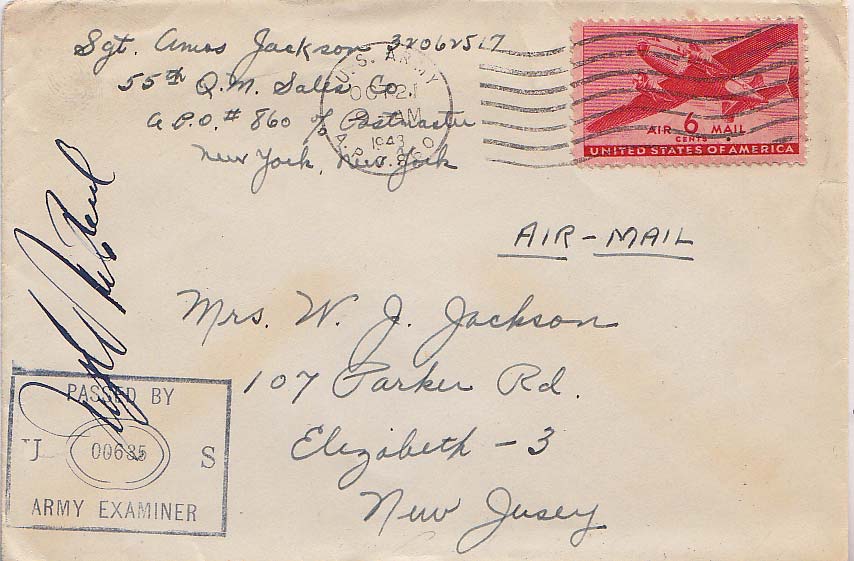 Sgt. Amos Jackson 32062517
55th Q.M. Sales Co.
A.P.O. # 860 c/o Postmaster
New York, New York
U.S. ARMY
OCT 21
AM
1943
A.P.O.
AIR 6 MAIL
CENTS
UNITED STATES OF AMERICA
AIR-MAIL
Mrs. W. J. Jackson
107 Parker Rd.
Elizabeth - 3
New Jersey
PASSED BY
U 00685 S
ARMY EXAMINER